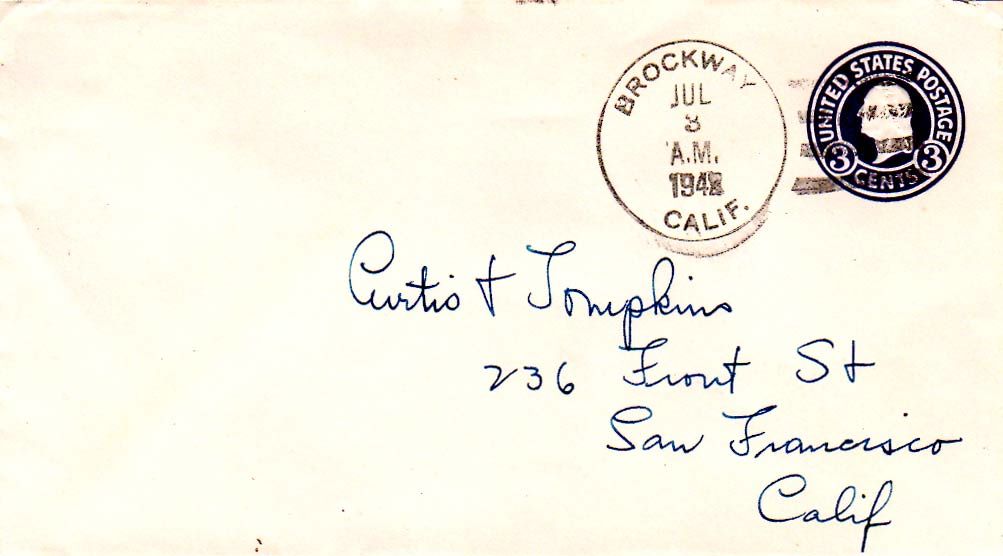 BROCKWAY
JUL
8
A.M.
CALIF.
UNITED STATES POSTAGE
3 3
CENTS
Curtis + Tompkins
236 Front St
San Francisco
Calif